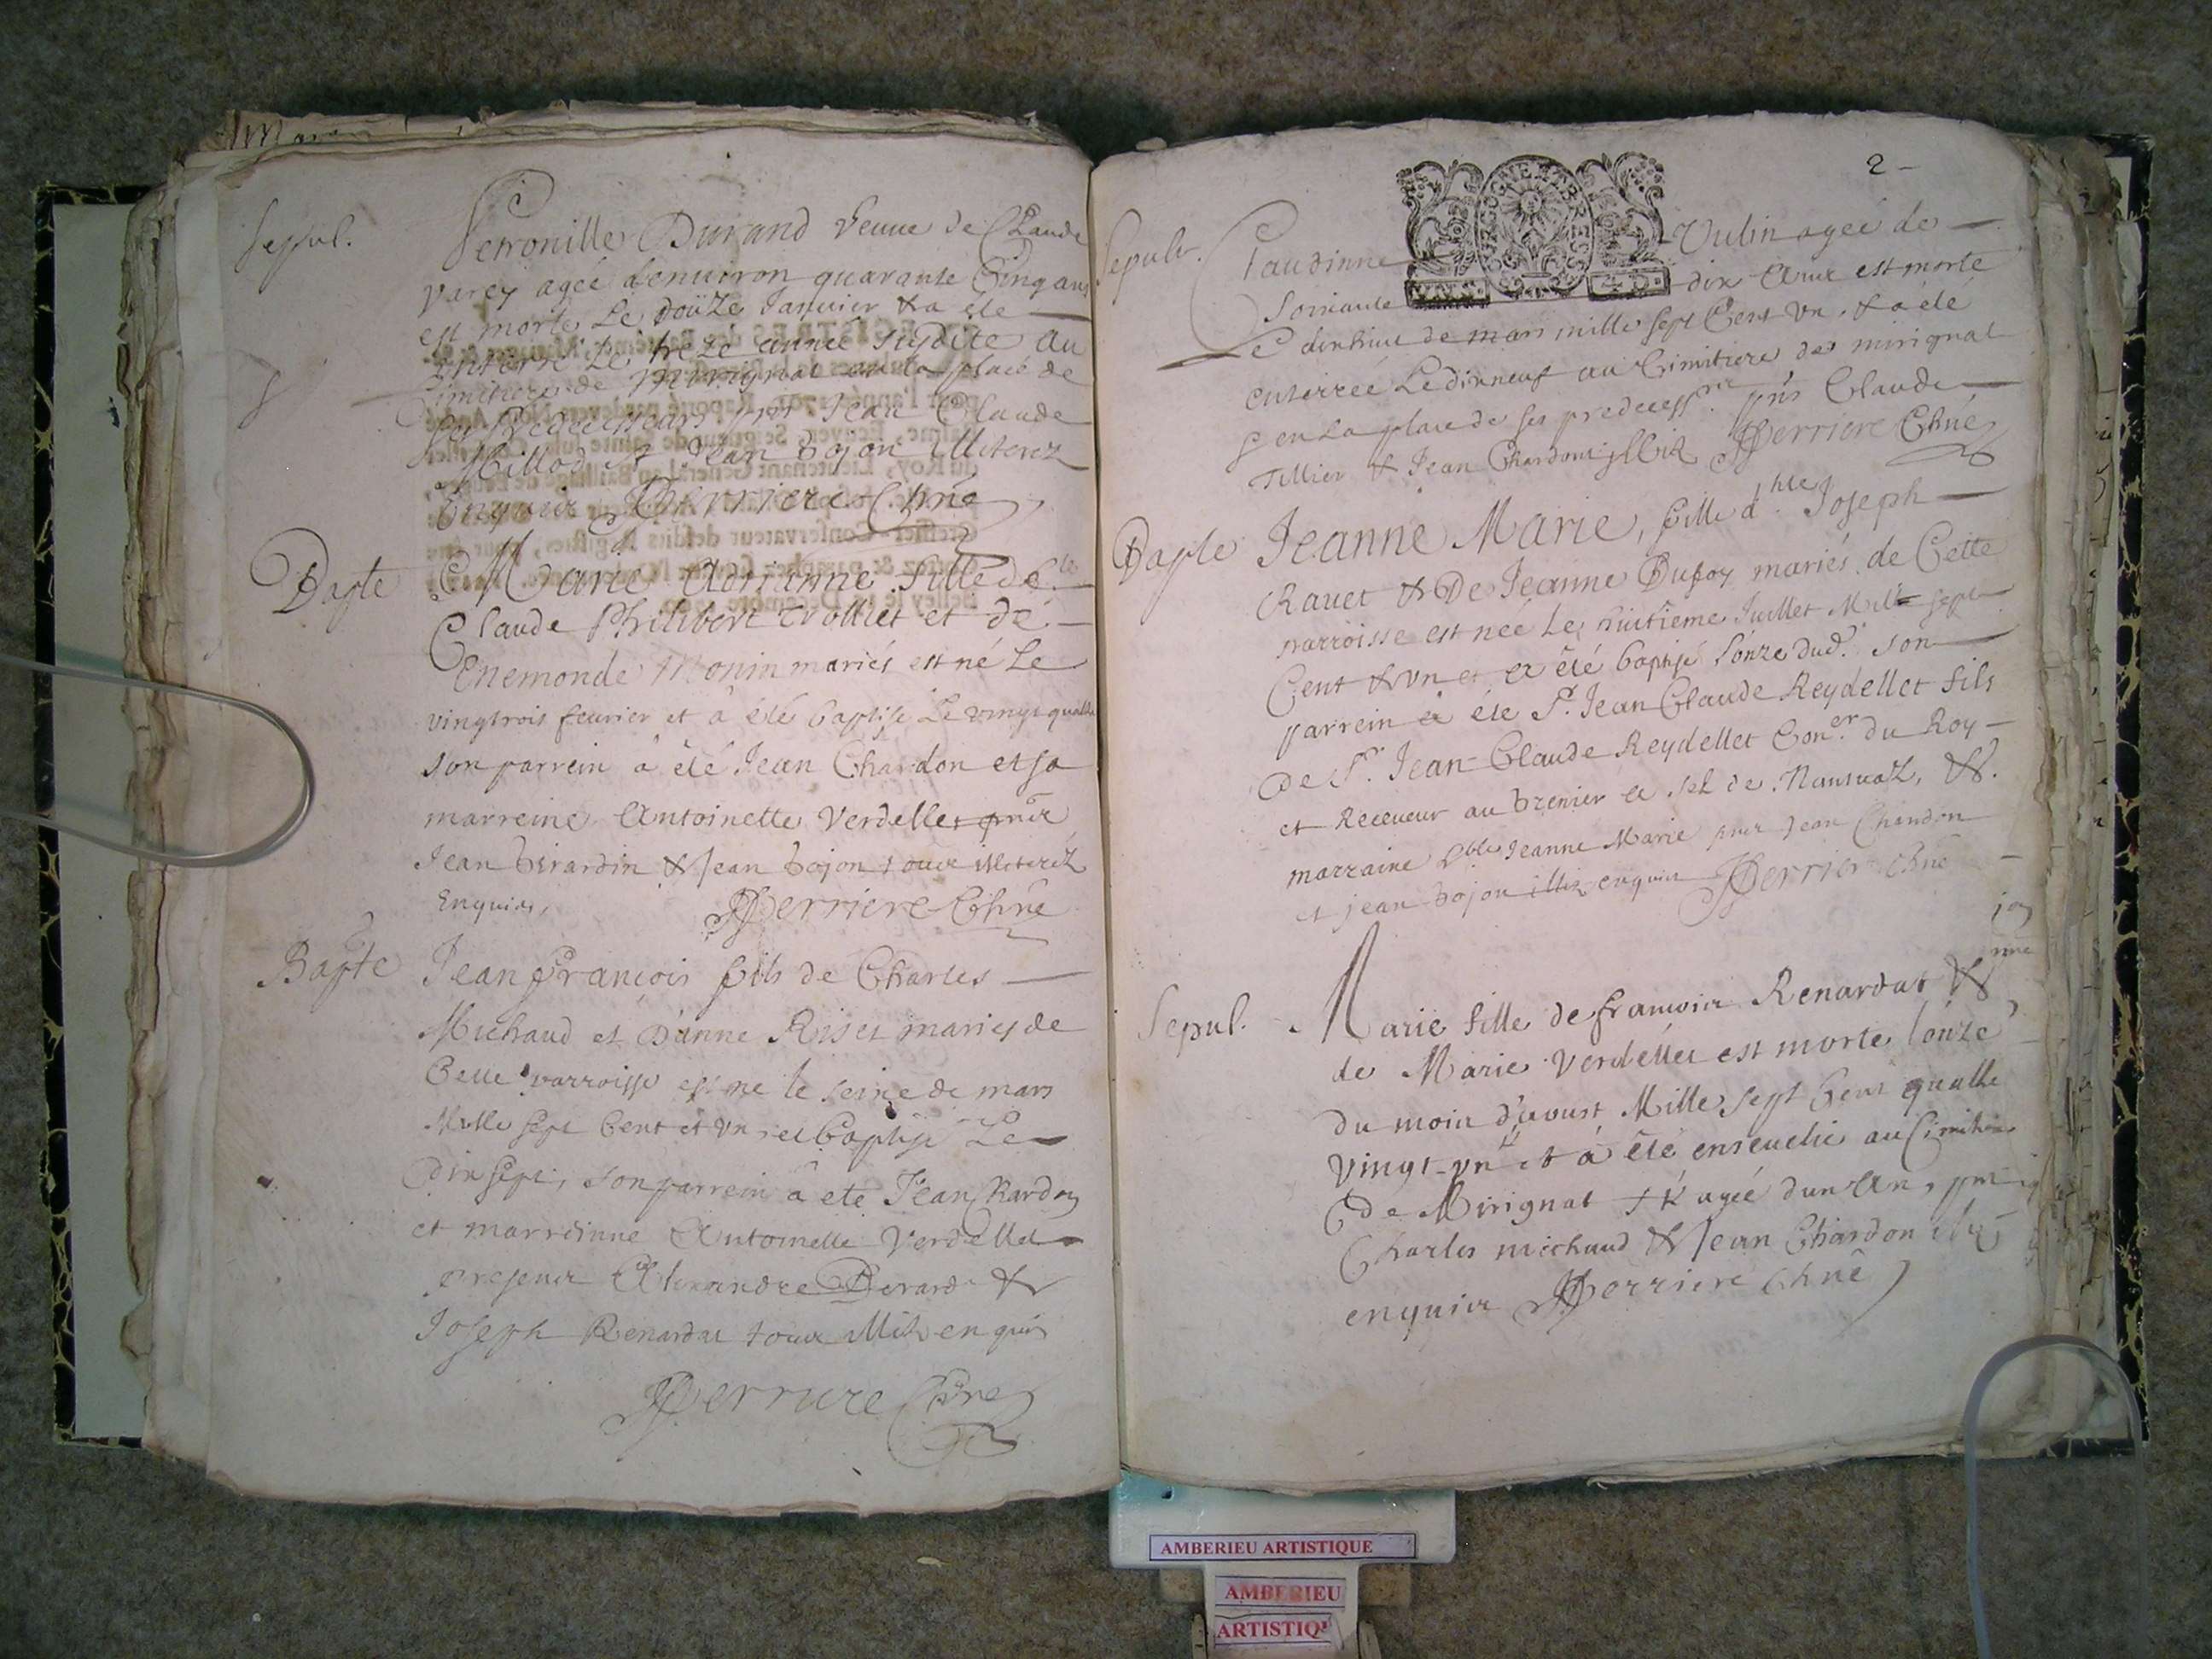 Sepul. Petronille Durand veuve de Claude
varey agée denuiron quarante Cinq ans
est morte Le douze Januier & a ete
Enterré Le treze année susdite au
Cimitiere de Mirignat en la place de
ses Predecesseurs Jean Claude
Millod & Jean Bojon illiterez
Enquis Perriere Chne
Bapte Marie Adrianne fille de
Claude Philibert trolliet et de
Enemonde Monin mariés est né Le
vingtrois feurier et â été Baptisé Le vingt quatre
son parrein â été Jean Chardon et sa
marreine Antoinette Verdellet
Jean Girardin & Jean Bojon tous illiterez
Enquis, Perriere Chne
Bapte Jean François fils de Charles
Michaud et D'anne Risset mariés de
Cette parroisse est né le seize de mars
Mille sept Cent et vn et Baptisé Le
dix sept, son parrein â ete Jean Chardon
et marreinne Antoinette Verdellet
presens Alexandre Berard &
Joseph Renardat tous illit enquis
Perriere Chne
2
Sepult. Claudinne Vulin ageé de
Soixante dix Ans est morte
Le dixhuit de mars mille sept Cent vn. & a été
enterreé Le dixneuf au Cimitiere de mirignat
en la place de ses predecess. pns Claude
Tillier & Jean Chardon illit Perriere Chne
Bapte Jeanne Marie, fille d'hle Joseph
Rauet & De Jeanne Dufoy mariés de Cette
parroisse est née Le huitieme Juillet Mil sept
Cent & vn et a été baptisé l'onze dud. son
parrein a été Sr. Jean Claude Reydellet fils
de Sr. Jean Claude Reydellet Coner. du Roy
et Receueur au Grenier a sel de Nantuaz, &.
marraine Dble Jeanne Marie pns Jean Chardon
et jean Bojon illit enquis Perriere Chne
Sepul. Marie fille de francois Renardat &
de Marie Verdellet est morte l'onze
du mois d'aoust Mille sept Cent
vingt-vn et a été enseuelie au Cimitiere
de Mirignat ageé dun An, pns
Charles michaud & Jean Chardon
enquis Perriere Chne
AMBERIEU ARTISTIQUE
AMBERIEU
ARTISTIQU